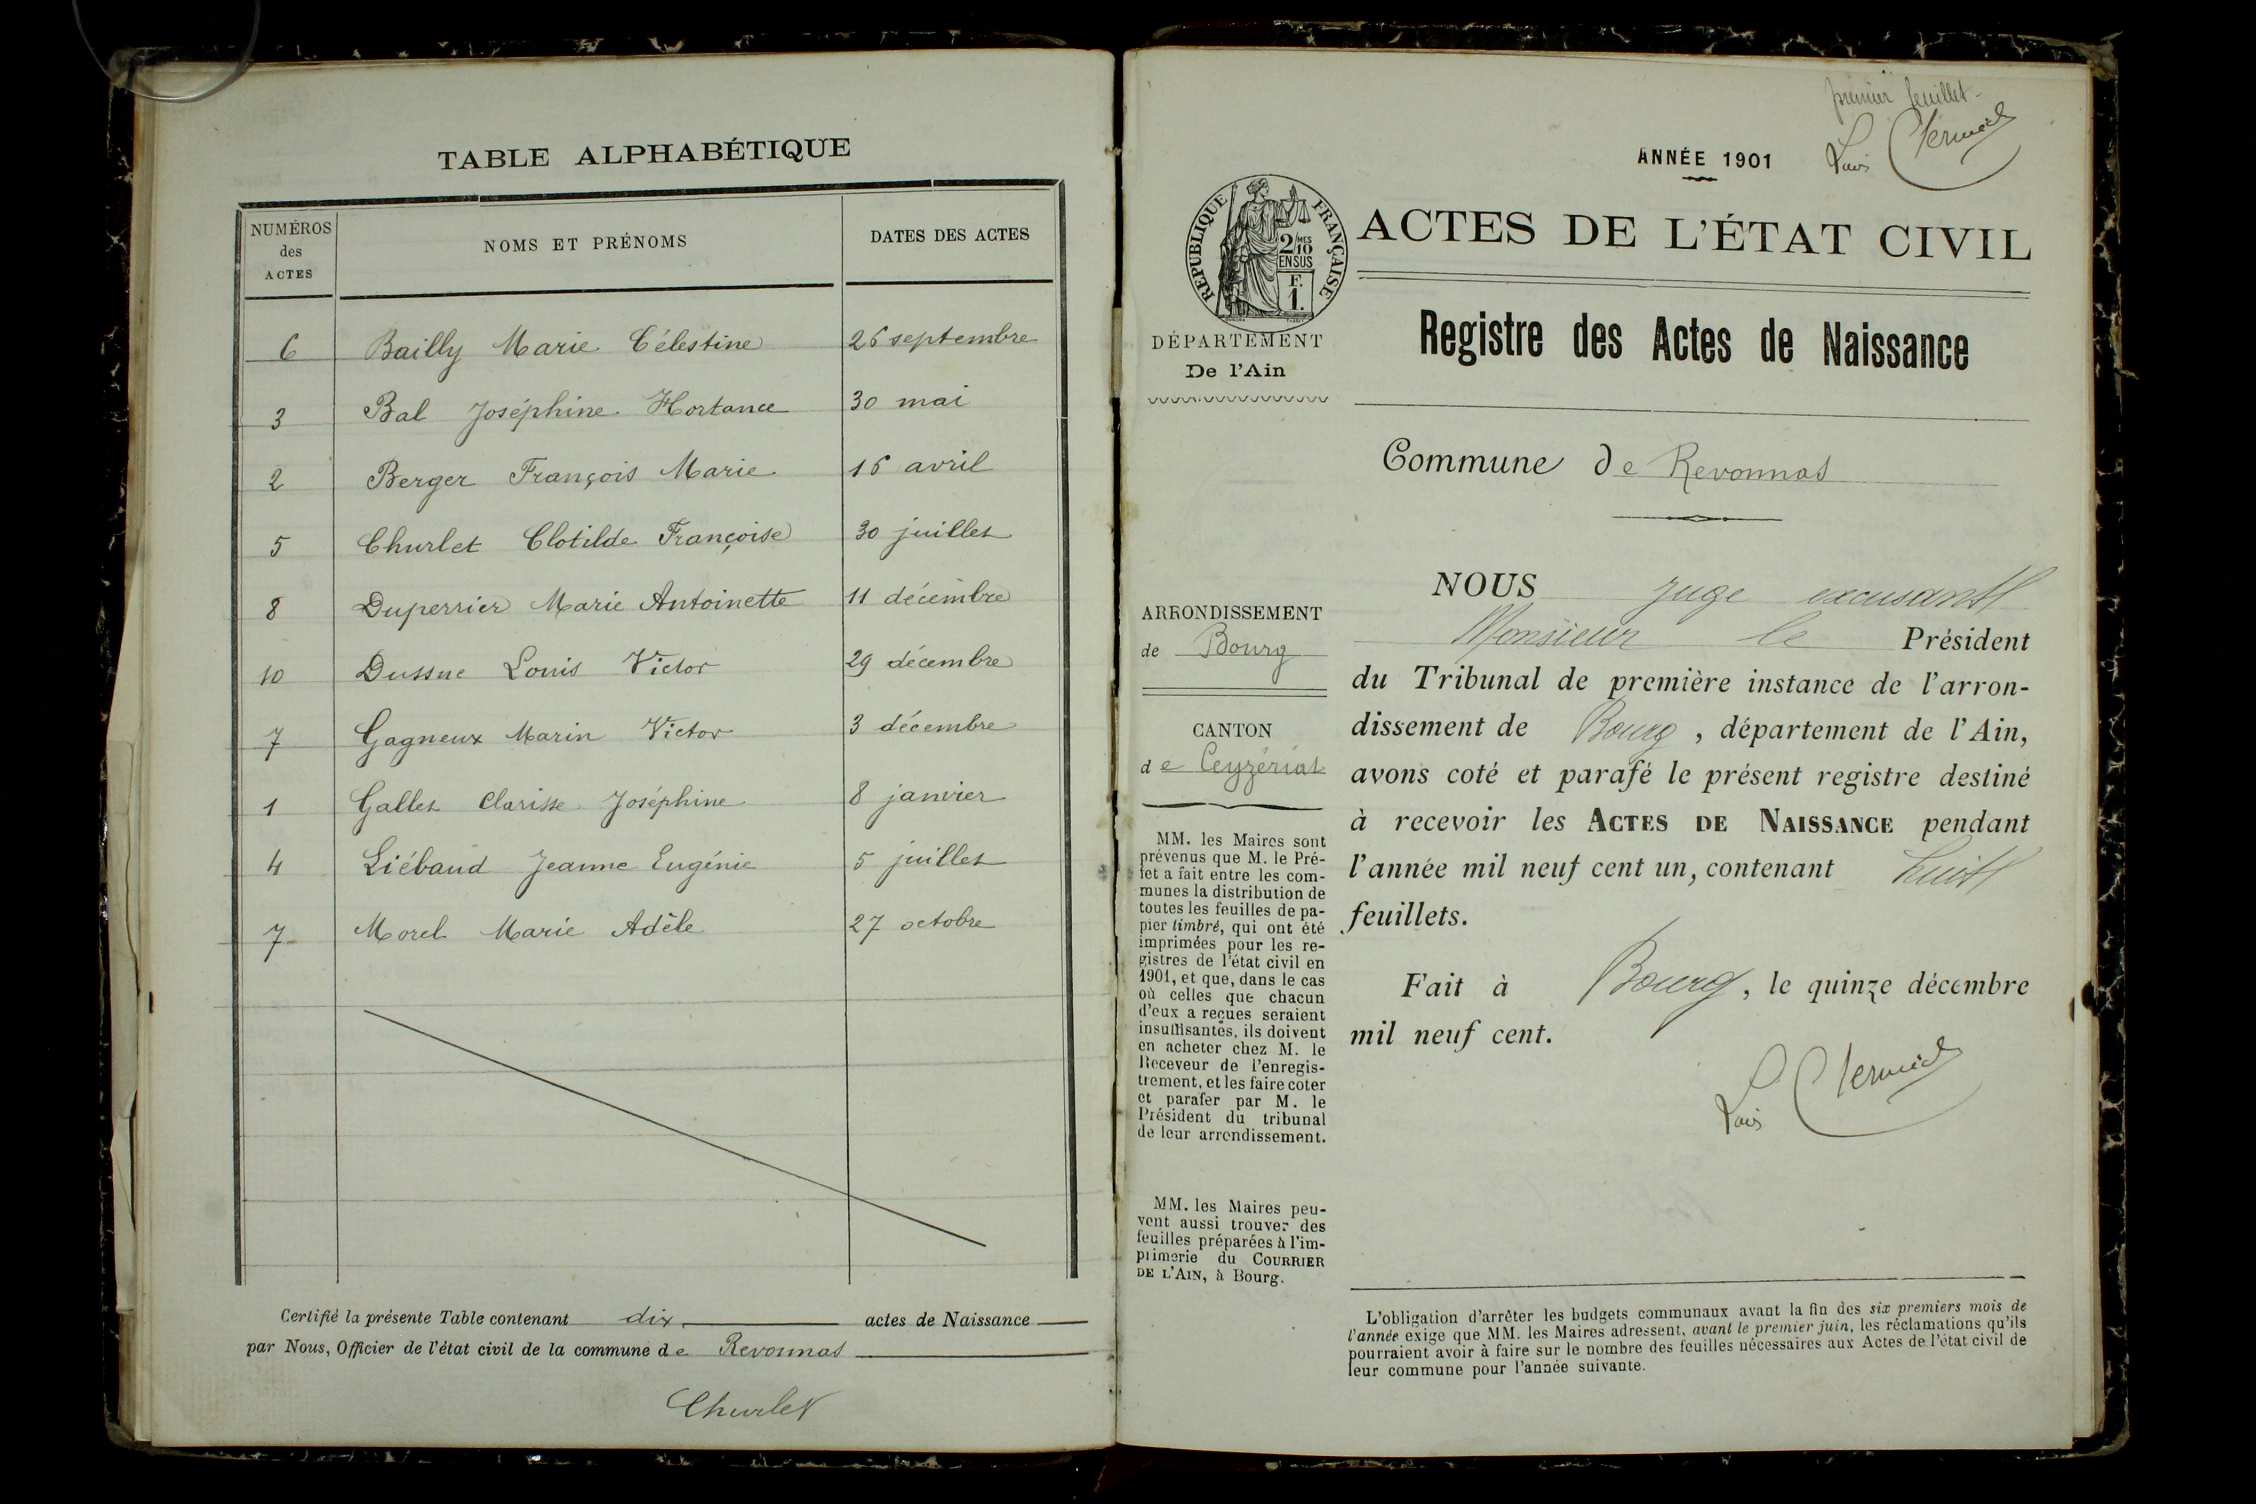 TABLE ALPHABÉTIQUE
NUMÉROS
des
ACTES
NOMS ET PRÉNOMS
DATES DES ACTES
6 Bailly Marie Célestine 26 septembre
3 Bal Joséphine Hortance 30 mai
2 Berger François Marie 16 avril
5 Churlet Clotilde Françoise 30 juillet
8 Duperrier Marie Antoinette 11 décembre
10 Dussuc Louis Victor 29 décembre
7 Gagneux Marin Victor 3 décembre
1 Gallet Clarisse Joséphine 8 janvier
4 Liébaud Jeanne Eugénie 5 juillet
7 Morel Marie Adèle 27 octobre
Certifié la présente Table contenant dix actes de Naissance
par Nous, Officier de l'état civil de la commune de Revonnas
Churlet
premier feuillet
Louis
ANNÉE 1901
RÉPUBLIQUE FRANÇAISE
2/10 MES
EN SUS
F.
1.
DÉPARTEMENT
De l'Ain
ARRONDISSEMENT
de Bourg
CANTON
de Ceyzériat
MM. les Maires sont
prévenus que M. le Pré-
fet a fait entre les com-
munes la distribution de
toutes les feuilles de pa-
pier timbré, qui ont été
imprimées pour les re-
gistres de l'état civil en
1901, et que, dans le cas
où celles que chacun
d'eux a reçues seraient
insuffisantes, ils doivent
en acheter chez M. le
Receveur de l'enregis-
trement, et les faire coter
et parafer par M. le
Président du tribunal
de leur arrondissement.
MM. les Maires peu-
vent aussi trouver des
feuilles préparées à l'im-
primerie du COURRIER
DE L'AIN, à Bourg.
ACTES DE L'ÉTAT CIVIL
Registre des Actes de Naissance
Commune de Revonnas
NOUS juge excusant
Monsieur le Président
du Tribunal de première instance de l'arron-
dissement de Bourg, département de l'Ain,
avons coté et parafé le présent registre destiné
à recevoir les ACTES DE NAISSANCE pendant
l'année mil neuf cent un, contenant huit
feuillets.
Fait à Bourg, le quinze décembre
mil neuf cent.
Louis
L'obligation d'arrêter les budgets communaux avant la fin des six premiers mois de
l'année exige que MM. les Maires adressent, avant le premier juin, les réclamations qu'ils
pourraient avoir à faire sur le nombre des feuilles nécessaires aux Actes de l'état civil de
leur commune pour l'année suivante.